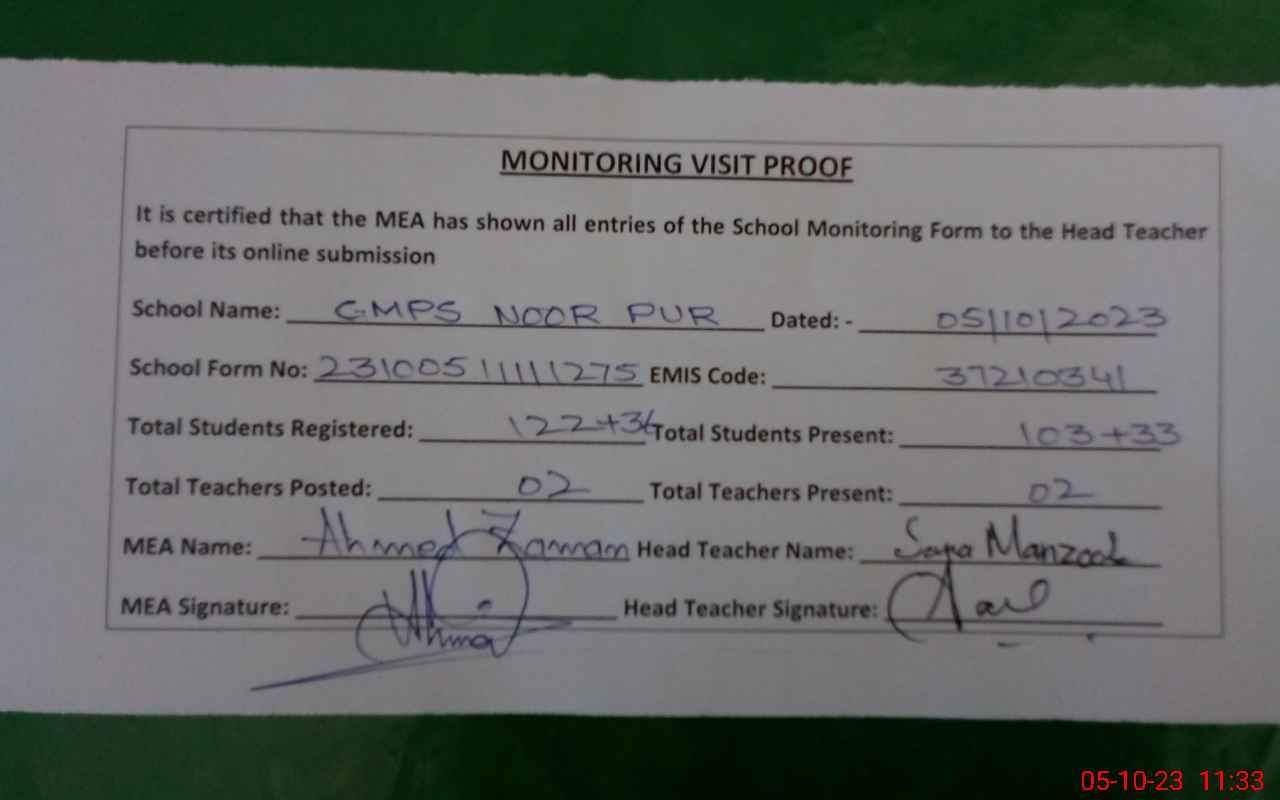 MONITORING VISIT PROOF
It is certified that the MEA has shown all entries of the School Monitoring Form to the Head Teacher
before its online submission
School Name: GMPS NOOR PUR Dated: - 05/10/2023
School Form No: 23100511111275 EMIS Code: 37210341
Total Students Registered: 122+36 Total Students Present: 103+33
Total Teachers Posted: 02 Total Teachers Present: 02
MEA Name: Ahmed Zaman Head Teacher Name: Manzoor
MEA Signature: Head Teacher Signature:
05-10-23 11:33